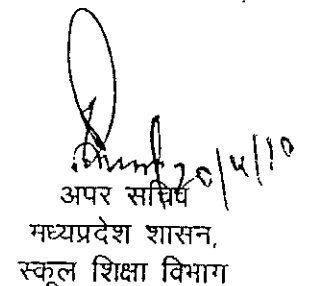 20/4/10
अपर सचिव
मध्यप्रदेश शासन,
स्कूल शिक्षा विभाग